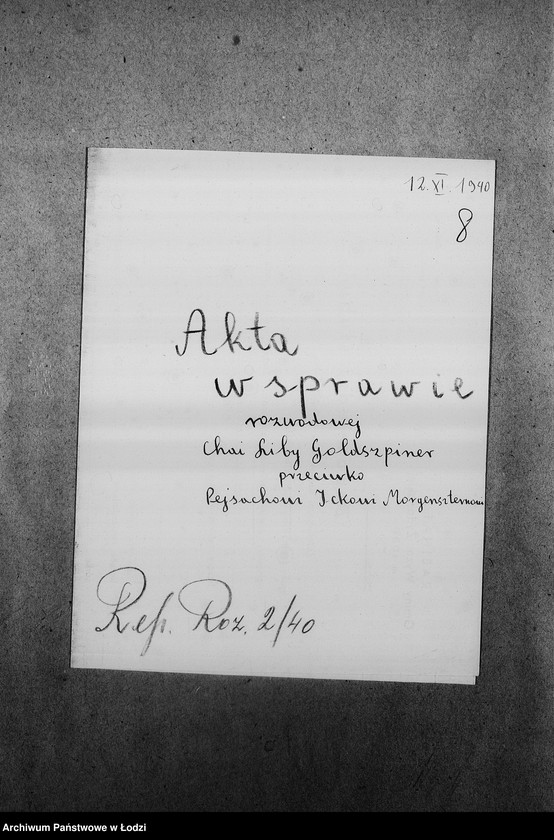 12.XI.1940
8
Akta
w sprawie
rozwodowej
Chai Liby Goldszpiner
przeciwko
Pejsachowi Ickowi Morgenszternowi
Rep. Roz. 2/40
Archiwum Państwowe w Łodzi